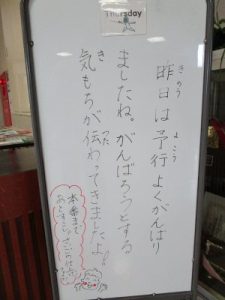 Thursday
昨日は予行よくがんばり
ましたね。がんばろうとする
気もちが伝わってきましたよ!!
きのう
よこう
き
つた
本番まで
あと